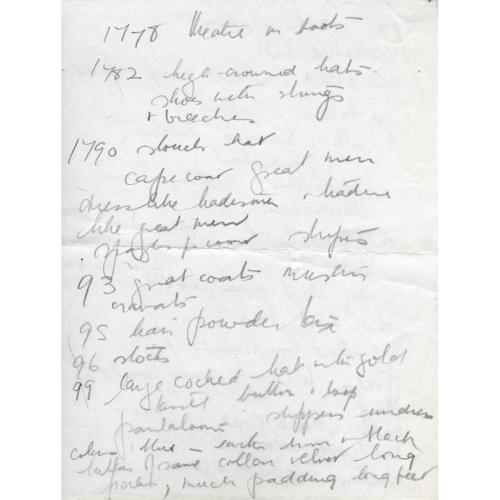 1778 theatre in boots
1782 high crowned hats
shoes with strings
+ breeches
1790 slouch hat
cape coat great men
dress like tradesmen + trades
like great men
spangles fr court stripes
93 great coats muslin
cravats
95 hair powder tax
96 stocks
99 large cocked hat with gold
tassel button + loop
pantaloons slippers undress
colours blue – earth + black
button of same collar velvet long
pocket, much padding long